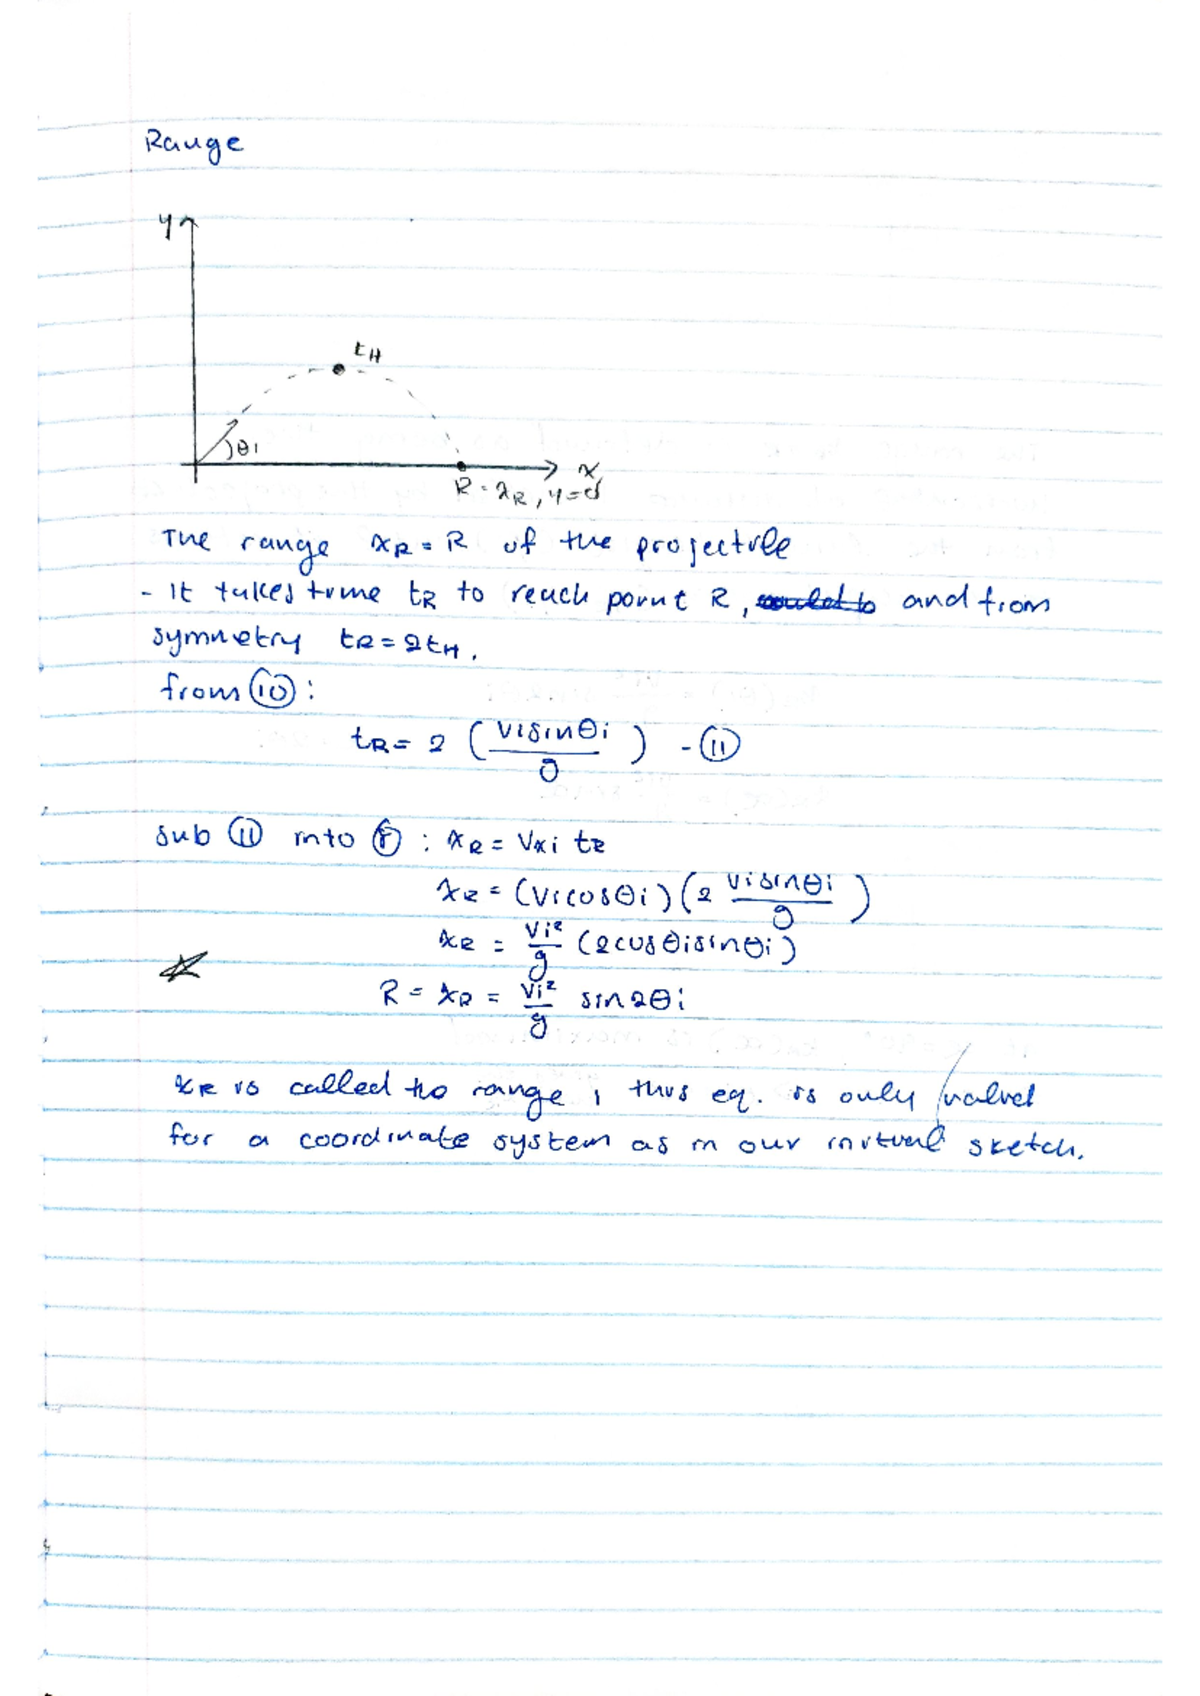 Range
y
tH
θi
x
R = xR, y=0
The range xR = R of the projectile
- It takes time tR to reach point R, and from
symmetry tR = 2tH.
from ⑩ :
tR = 2 ( visinθi / g ) - ⑪
sub ⑪ into ⑧ : xR = Vxi tR
xR = (vicosθi)(2 visinθi / g)
xR = vi² / g (2cosθisinθi)
R = xR = vi² / g sin2θi
xR is called the range, this eq. is only valid
for a coordinate system as in our initial sketch.